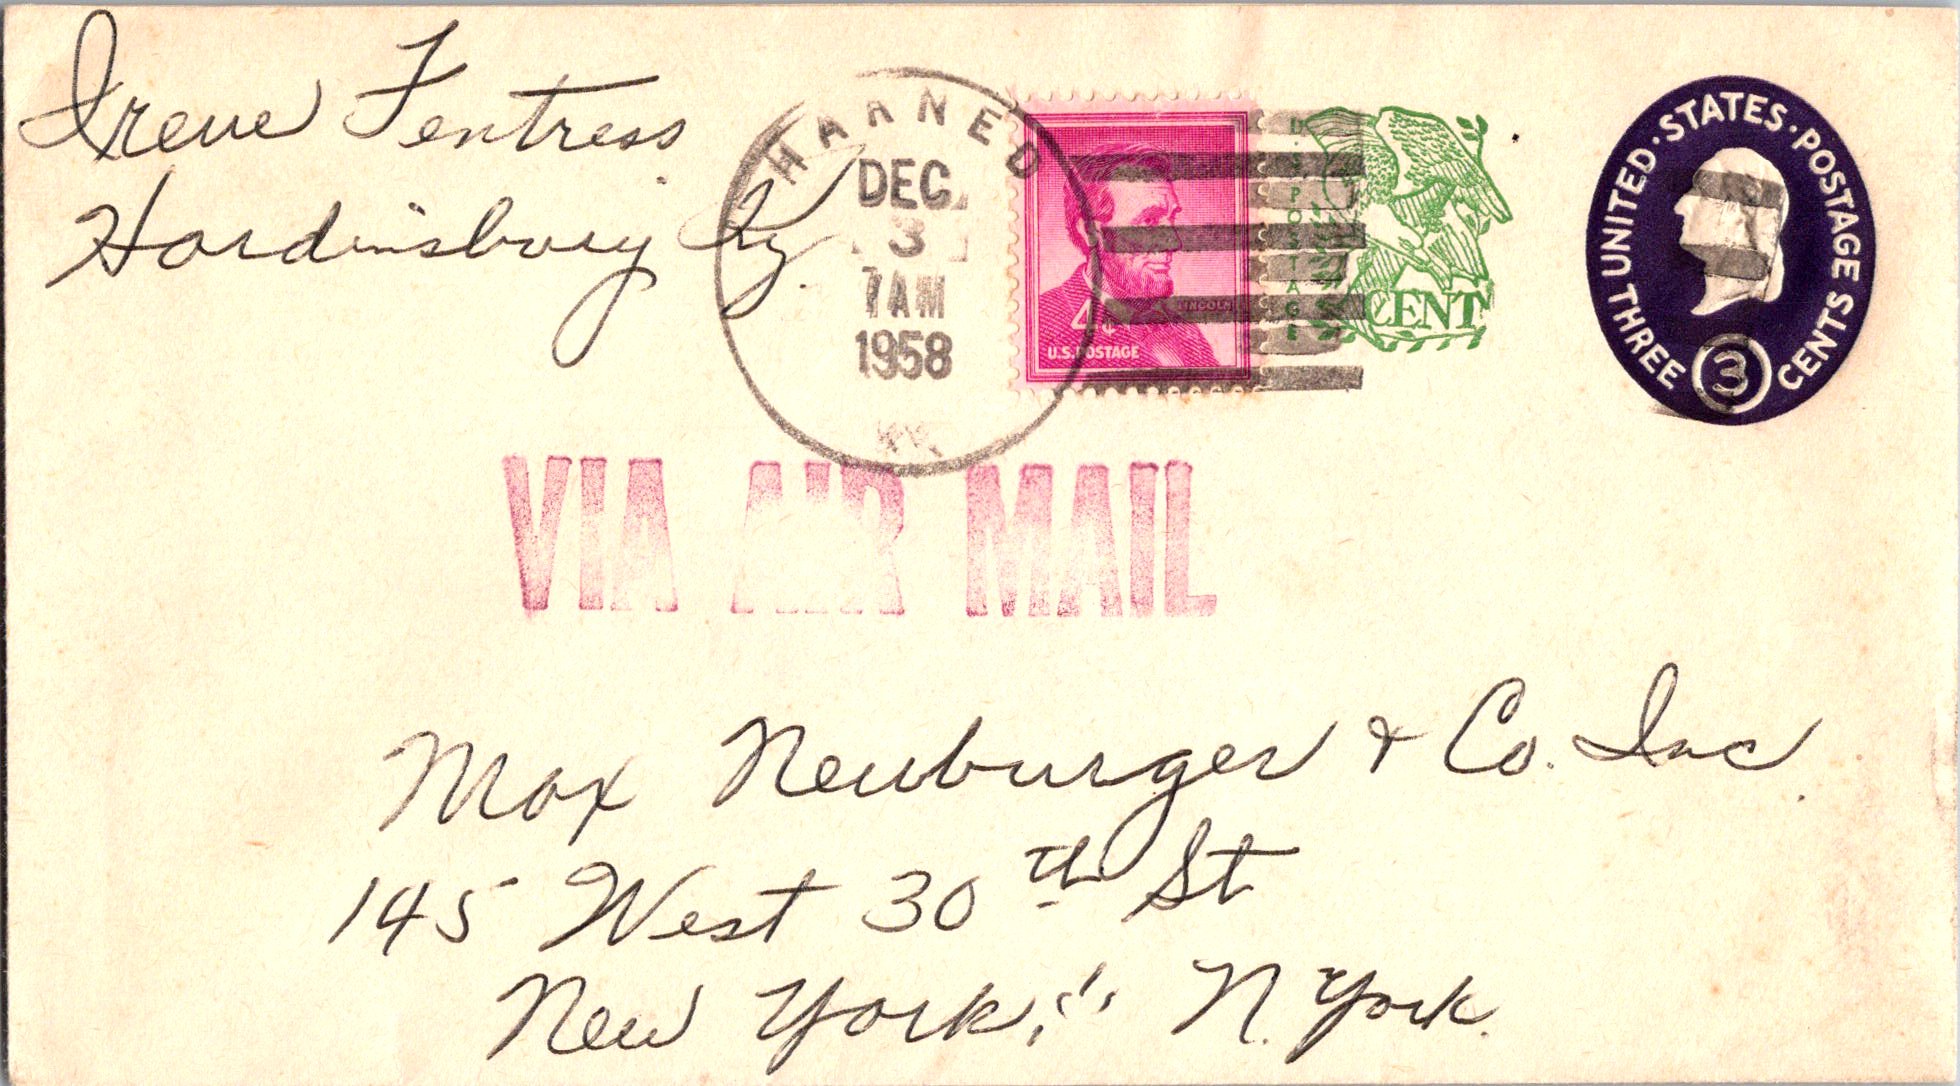 Irene Fentress
Hardinsburg Ky.
HARNED
DEC
3
7 AM
1958
KY
LINCOLN
4¢
U.S. POSTAGE
U.S. POSTAGE
CENT
UNITED · STATES · POSTAGE
THREE 3 CENTS
VIA AIR MAIL
Max Neuburger & Co. Inc.
145 West 30th St
New York, N. York.